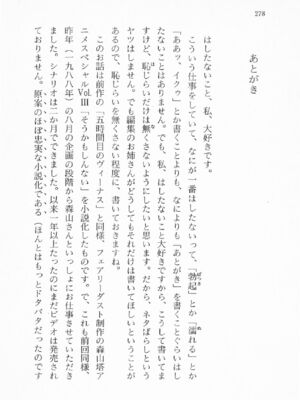 278
あとがき
はしたないこと、私、大好きです。
こういう仕事をしていて、なにが一番はしたないって、「勃起」とか「濡れる」とか
「ああッ、イクゥ」とか書くことよりも、なによりも「あとがき」を書くことぐらいはし
たないことはありません。でも、私、はしたないこと大好きですから、こうして書いてま
すけど、恥じらいだけは無くさないようにしたいと思います。だから、ネタばらしという
ヤツはしません。でも編集のお姉さんがどうしてもそれだけは書いてほしいということが
あるので、恥じらいを無くさない程度に、書いておきますね。
このお話は前作の「五時間目のヴィーナス」と同様、フェアリーダスト制作の森山塔ア
ニメスペシャルVol.Ⅲ「そうかもしんない」を小説化したものです。で、これも前回同様、
昨年（一九八八年）の八月の企画の段階から森山さんといっしょにお仕事させていただき
ました。シナリオは二か月でできました。以来一年以上たったのにまだビデオは発売され
ておりません。原案のほぼ忠実な小説化である（ほんとはもっとドタバタだったのです